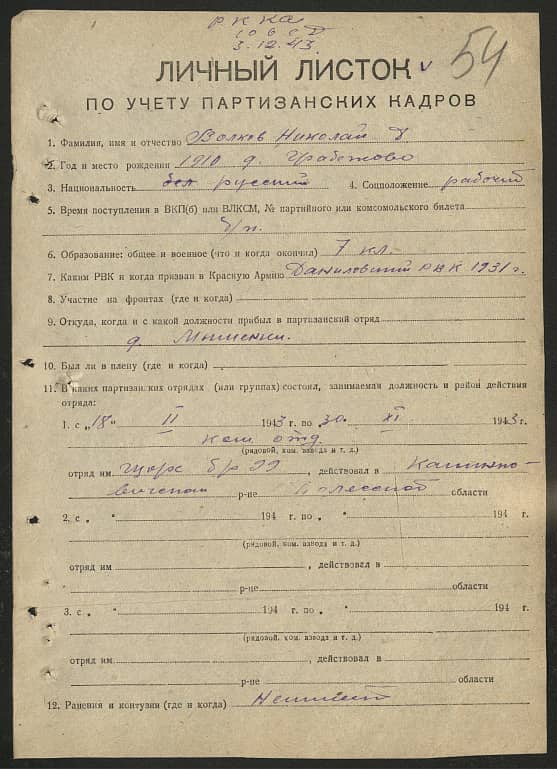 РККА
3.12.43.
54
ЛИЧНЫЙ ЛИСТОК
ПО УЧЕТУ ПАРТИЗАНСКИХ КАДРОВ
1. Фамилия, имя и отчество Волков Николай
2. Год и место рождения 1910 д. Грабежово
3. Национальность русский 4. Соцположение рабочий
5. Время поступления в ВКП(б) или ВЛКСМ, № партийного или комсомольского билета
б/п.
6. Образование: общее и военное (что и когда окончил) 7 кл.
7. Каким РВК и когда призван в Красную Армию Даниловский РВК 1931 г.
8. Участие на фронтах (где и когда)
9. Откуда, когда и с какой должности прибыл в партизанский отряд
д. Мышенки.
10. Был ли в плену (где и когда)
11. В каких партизанских отрядах (или группах) состоял, занимаемая должность и район действия
отряда:
1. с „18" II 1943 г. по „30" XI 1943 г.
ком. отд.
(рядовой, ком. взвода и т. д.)
отряд им Щорс бр 99, действовал в Калинко-
вичском р-не Полесской области
2. с „ " 194 г. по „ " 194 г.
(рядовой, ком. взвода и т. д.)
отряд им , действовал в
р-не области
3. с „ " 194 г. по „ " 194 г.
(рядовой, ком. взвода и т. д.)
отряд им , действовал в
р-не области
12. Ранения и контузии (где и когда)